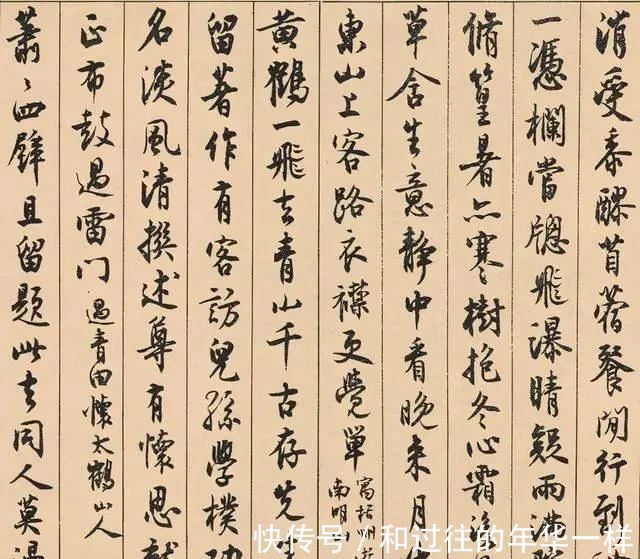 消受黍醪苜蓿餐閒行到
一憑欄當牕飛瀑晴疑雨滿
脩篁暑亦寒樹抱冬心霜
草含生意靜中看晚來月
東山上客路衣襟更覺單
寓栝州
南明
黃鶴一飛去青山千古存先
留著作有客訪兒孫學樸
名淡風清撰述尊有懷思就
正布鼓過雷門 過青田懷太鶴山人
蕭〻四壁且留題此去同人莫
快传号/和过往的年华一样